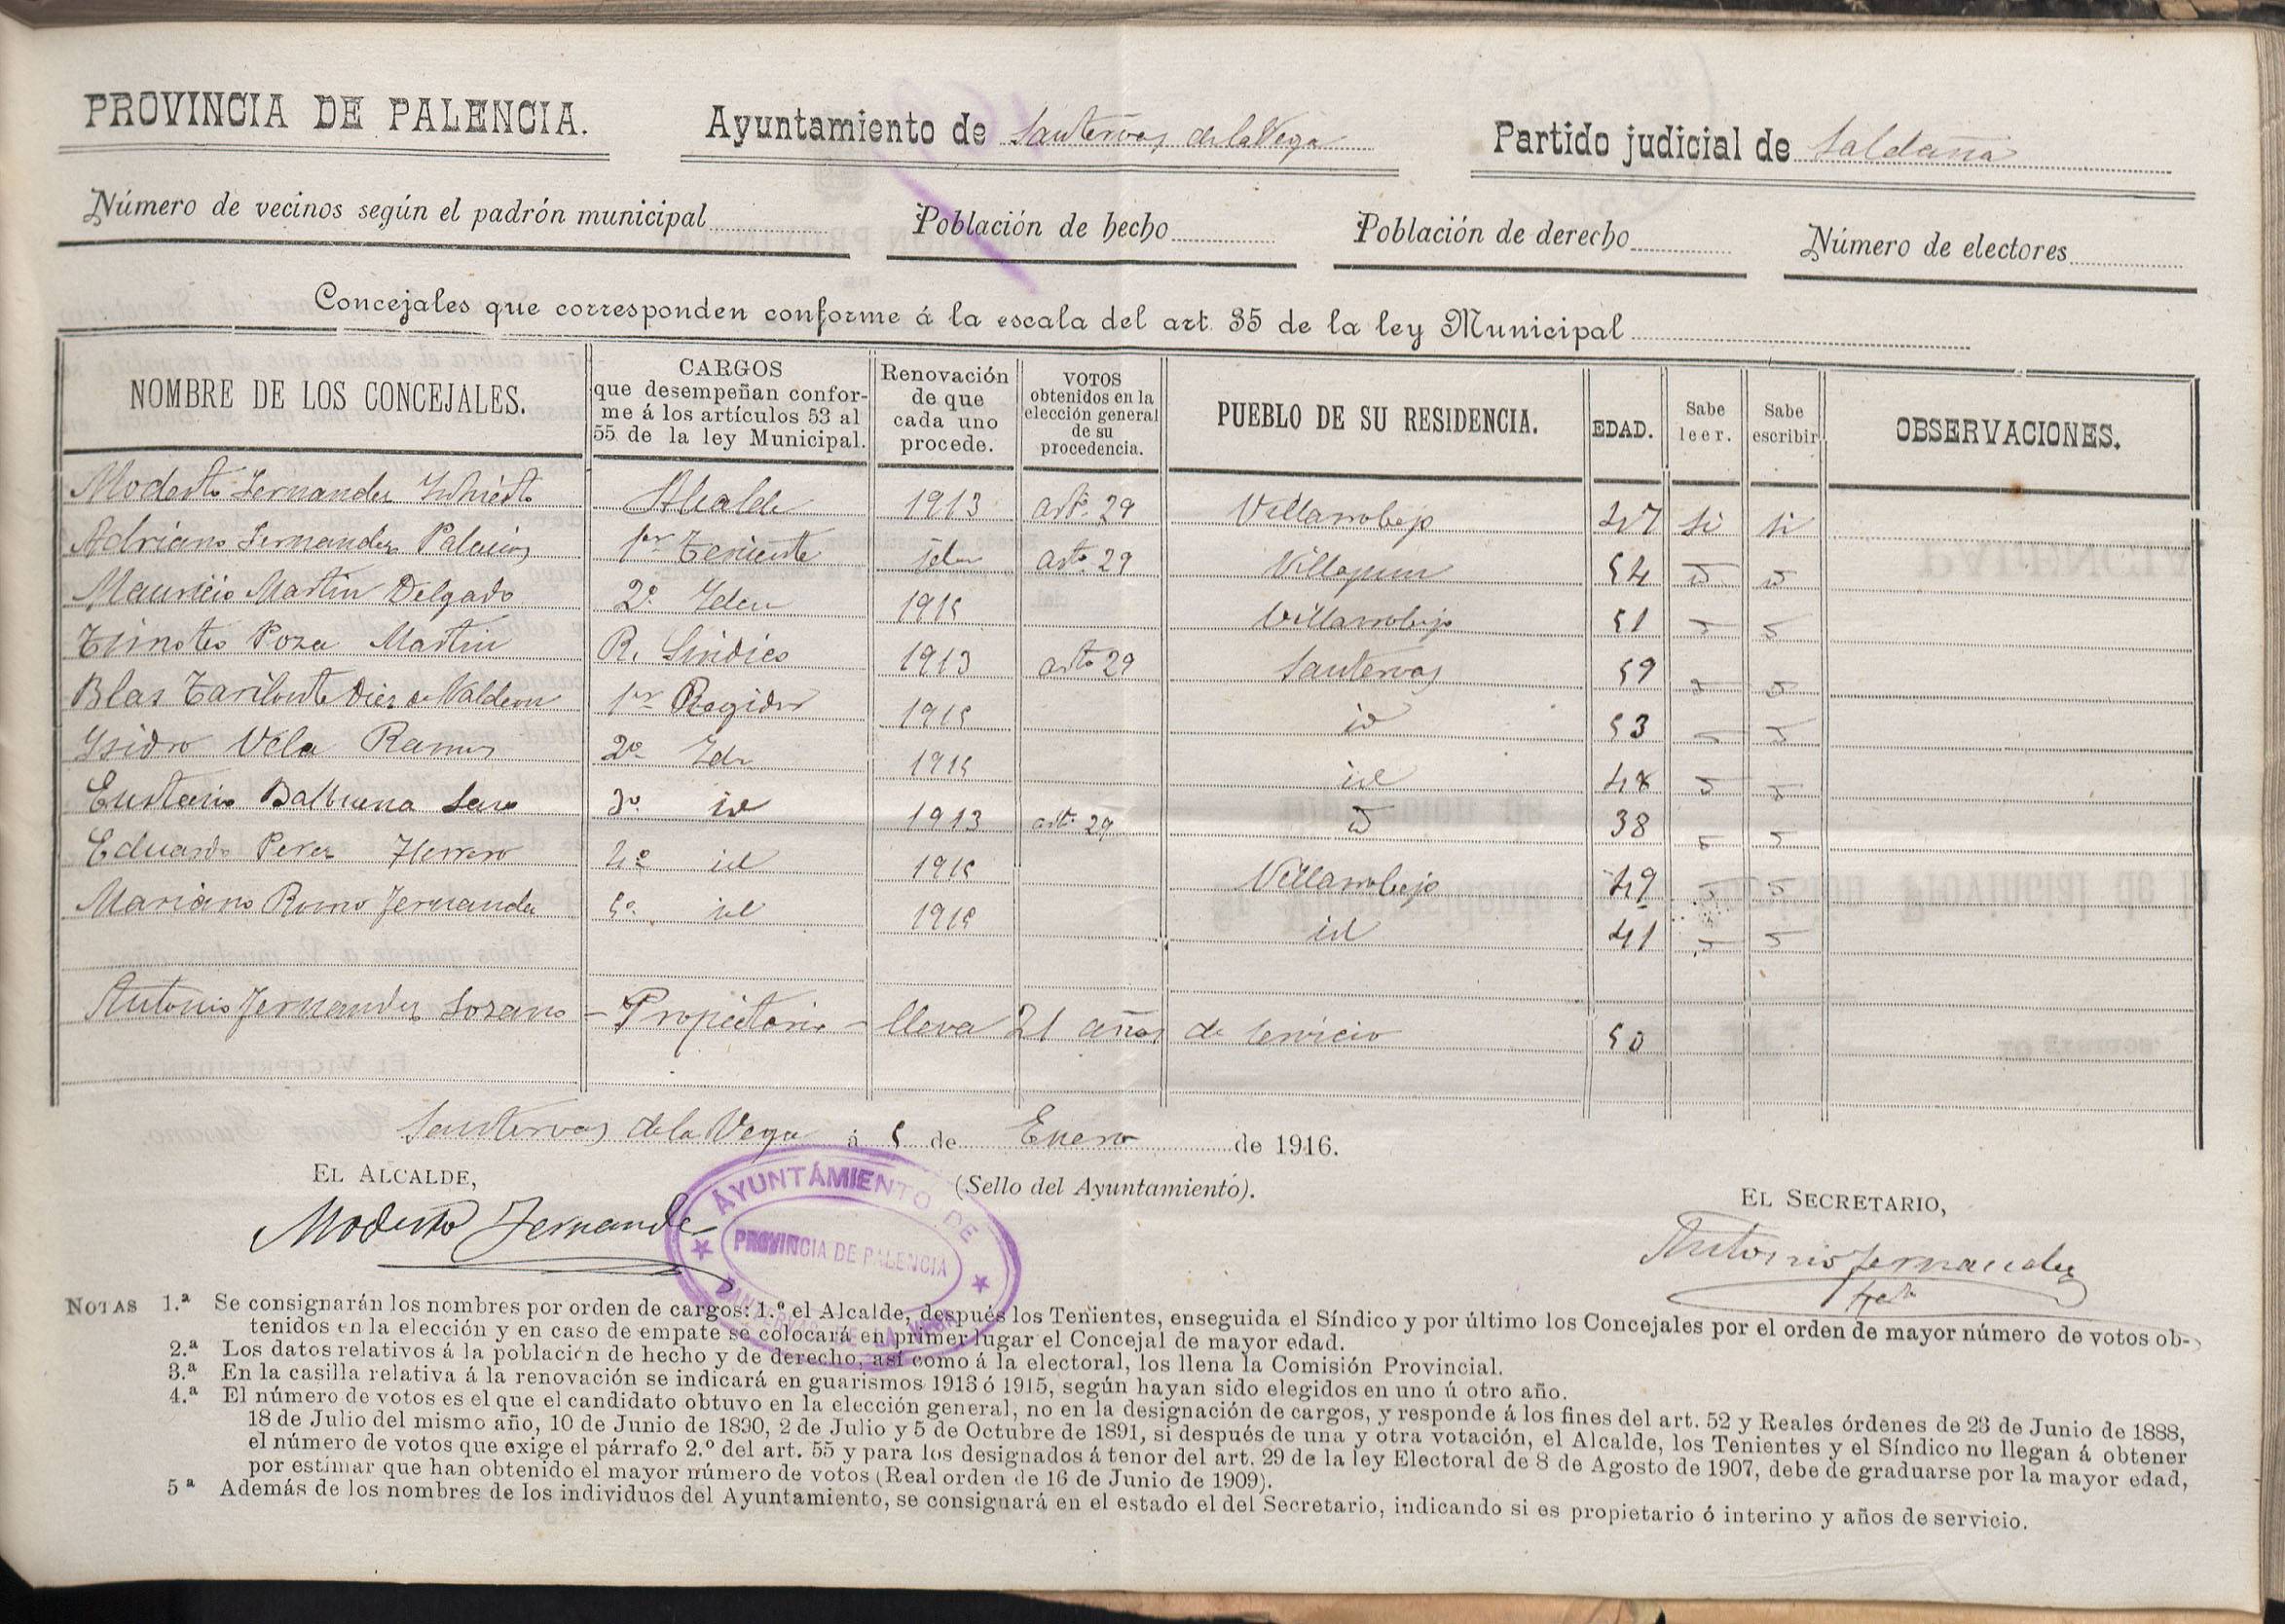 PROVINCIA DE PALENCIA. Ayuntamiento de Santervas de la Vega Partido judicial de Saldaña
Número de vecinos según el padrón municipal Población de hecho Población de derecho Número de electores
Concejales que corresponden conforme á la escala del art. 35 de la ley Municipal
NOMBRE DE LOS CONCEJALES. CARGOS que desempeñan confor-me á los artículos 53 al 55 de la ley Municipal. Renovación de que cada uno procede. VOTOS obtenidos en la elección general de su procedencia. PUEBLO DE SU RESIDENCIA. EDAD. Sabe leer. Sabe escribir OBSERVACIONES.
Modesto Fernandez Alcalde 1913 arto. 29 Villarrobejo 47 si si
Adriano Fernandez Palacios 1er Teniente idem arto. 29 Villapun 54 id id
Mauricio Martin Delgado 2º Idem 1915 Villarrobejo 51 id id
Timoteo Poza Martin R. Sindico 1913 arto 29 Santervas 59 id id
Blas Tarilonte Diez de Valdeon 1er Regidor 1915 id 53 id id
Ysidro Vela Ramos 2º Idm 1915 id 48 id id
Eustasio Balbuena 3º id 1913 arto. 29 id 38 id id
Eduardo Perez Herrero 4º id 1915 Villarrobejo 49 id id
Mariano Romo Fernandez 5º id 1915 id 41 id id
Antonio Fernandez Lozano - Propietario - lleva 21 años de servicio 50
Santervas de la Vega á 5 de Enero de 1916.
EL ALCALDE, (Sello del Ayuntamiento). EL SECRETARIO,
Modesto Fernandez Antonio Fernandez
AYUNTAMIENTO DE
PROVINCIA DE PALENCIA
SANTERVAS DE LA VEGA
NOTAS 1.ª Se consignarán los nombres por orden de cargos: 1.º el Alcalde, después los Tenientes, enseguida el Síndico y por último los Concejales por el orden de mayor número de votos ob-
tenidos en la elección y en caso de empate se colocará en primer lugar el Concejal de mayor edad.
2.ª Los datos relativos á la población de hecho y de derecho, así como á la electoral, los llena la Comisión Provincial.
3.ª En la casilla relativa á la renovación se indicará en guarismos 1913 ó 1915, según hayan sido elegidos en uno ú otro año.
4.ª El número de votos es el que el candidato obtuvo en la elección general, no en la designación de cargos, y responde á los fines del art. 52 y Reales órdenes de 23 de Junio de 1888,
18 de Julio del mismo año, 10 de Junio de 1890, 2 de Julio y 5 de Octubre de 1891, si después de una y otra votación, el Alcalde, los Tenientes y el Síndico no llegan á obtener
el número de votos que exige el párrafo 2.º del art. 55 y para los designados á tenor del art. 29 de la ley Electoral de 8 de Agosto de 1907, debe de graduarse por la mayor edad,
por estimar que han obtenido el mayor número de votos (Real orden de 16 de Junio de 1909).
5ª Además de los nombres de los individuos del Ayuntamiento, se consignará en el estado el del Secretario, indicando si es propietario ó interino y años de servicio.